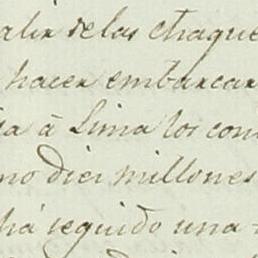 alir delas chaque
hacer embarcar
a à Lima los con
no diez millones
há seguido una